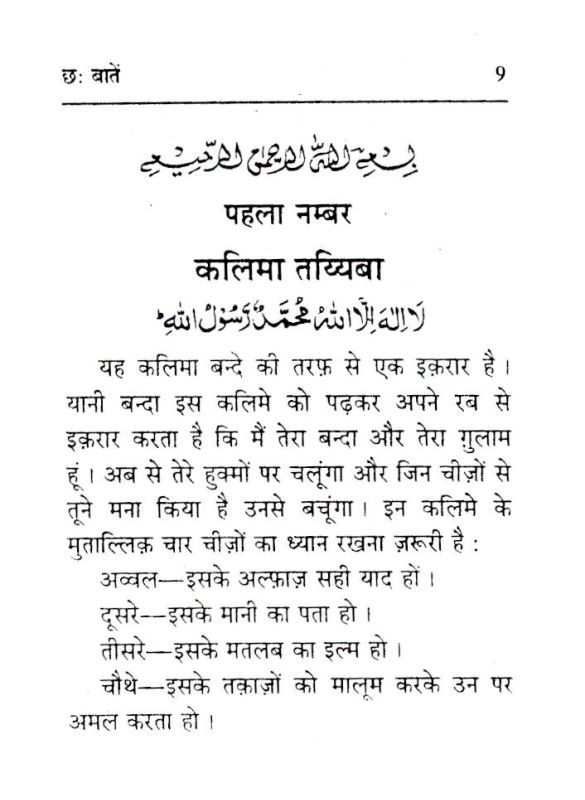 छः बातें 9
بِسْمِ اللهِ الرَّحْمٰنِ الرَّحِيْمِ
पहला नम्बर
कलिमा तय्यिबा
لَا اِلٰهَ اِلَّا اللهُ مُحَمَّدٌ رَّسُوْلُ اللهِ ؕ
यह कलिमा बन्दे की तरफ़ से एक इक़रार है ।
यानी बन्दा इस कलिमे को पढ़कर अपने रब से
इक़रार करता है कि मैं तेरा बन्दा और तेरा ग़ुलाम
हूं । अब से तेरे हुक्मों पर चलूंगा और जिन चीज़ों से
तूने मना किया है उनसे बचूंगा । इन कलिमे के
मुताल्लिक़ चार चीज़ों का ध्यान रखना ज़रूरी है :
अव्वल—इसके अल्फ़ाज़ सही याद हों ।
दूसरे—इसके मानी का पता हो ।
तीसरे—इसके मतलब का इल्म हो ।
चौथे—इसके तक़ाज़ों को मालूम करके उन पर
अमल करता हो ।